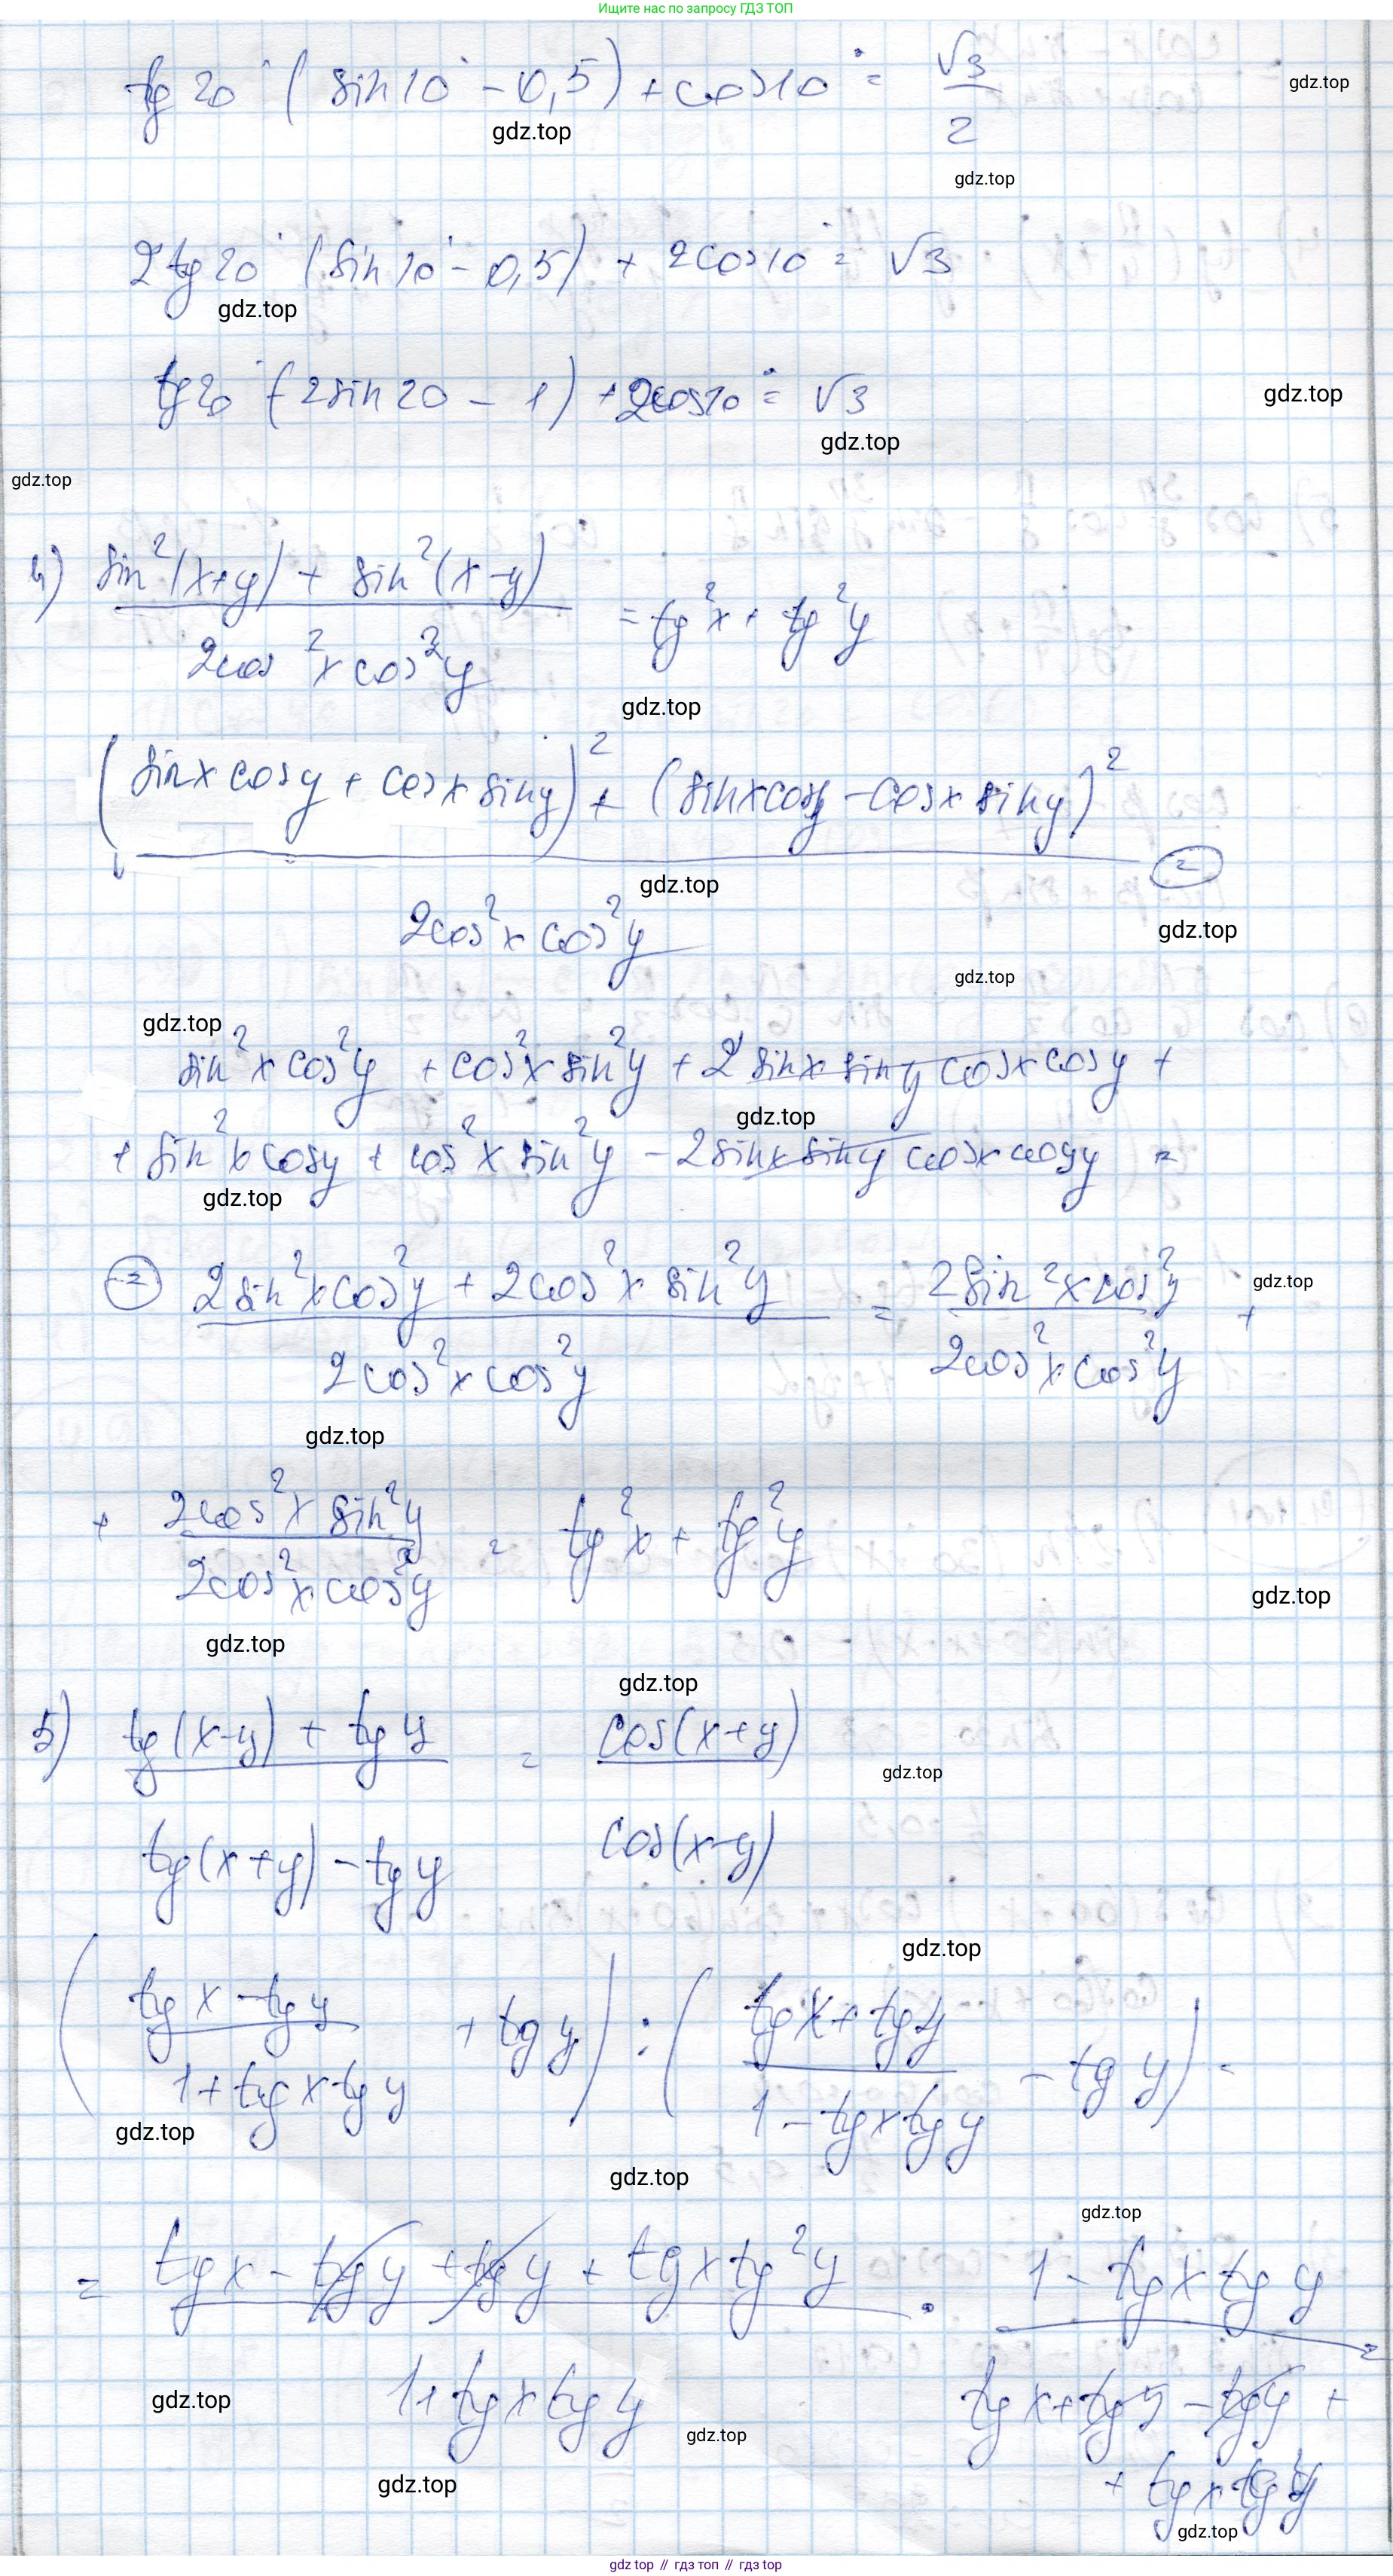 Ищите нас по запросу ГДЗ ТОП
tg 20° (sin 10° - 0,5) + cos 10° = √3/2
gdz.top
gdz.top
gdz.top
2tg 20° (sin 10° - 0,5) + 2cos 10° = √3
gdz.top
tg 20° (2sin 20 - 1) + 2cos 10° = √3
gdz.top
gdz.top
gdz.top
4) (sin²(x+y) + sin²(x-y)) / (2cos²x cos²y) = tg²x + tg²y
gdz.top
((sin x cos y + cos x sin y)² + (sin x cos y - cos x sin y)²) / (2cos²x cos²y) =
gdz.top
gdz.top
gdz.top
gdz.top
sin²x cos²y + cos²x sin²y + 2 sin x sin y cos x cos y +
gdz.top
+ sin²x cos y + cos²x sin²y - 2 sin x sin y cos x cos y =
gdz.top
= (2sin²x cos²y + 2cos²x sin²y) / (2cos²x cos²y) = (2sin²x cos²y) / (2cos²x cos²y) +
gdz.top
gdz.top
+ (2cos²x sin²y) / (2cos²x cos²y) = tg²x + tg²y
gdz.top
gdz.top
gdz.top
5) (tg(x-y) + tg y) / (tg(x+y) - tg y) = cos(x+y) / cos(x-y)
gdz.top
gdz.top
((tg x - tg y) / (1 + tg x tg y) + tg y) : ((tg x + tg y) / (1 - tg x tg y) - tg y) =
gdz.top
gdz.top
gdz.top
= (tg x - tg y + tg y + tg x tg²y) / (1 + tg x tg y) · (1 - tg x tg y) / (tg x + tg y - tg y +
+ tg x tg²y) =
gdz.top
gdz.top
gdz.top
gdz.top
gdz.top // гдз топ // гдз top